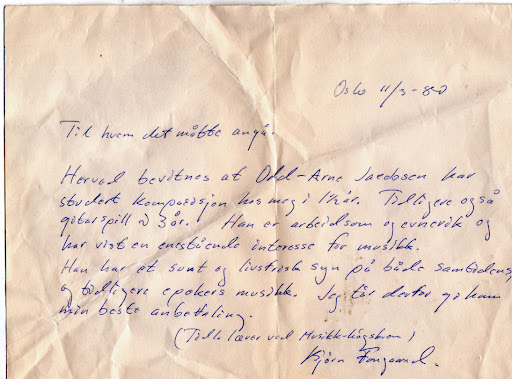 Oslo 11/3-80
Til hvem det måtte angå.
Herved bevitnes at Odd-Arne Jacobsen har
studert komposisjon hos meg i 1½ år. Tidligere også
gitarspill i 3 år. Han er arbeidsom og evnerik og
har vist en enestående interesse for musikk.
Han har et sunt og livsfriskt syn på både samtidens
og tidligere epokers musikk. Jeg får derfor gi ham
min beste anbefaling.
(Tidl. lærer ved Musikk-høgskolen)
Bjørn Fongaard.